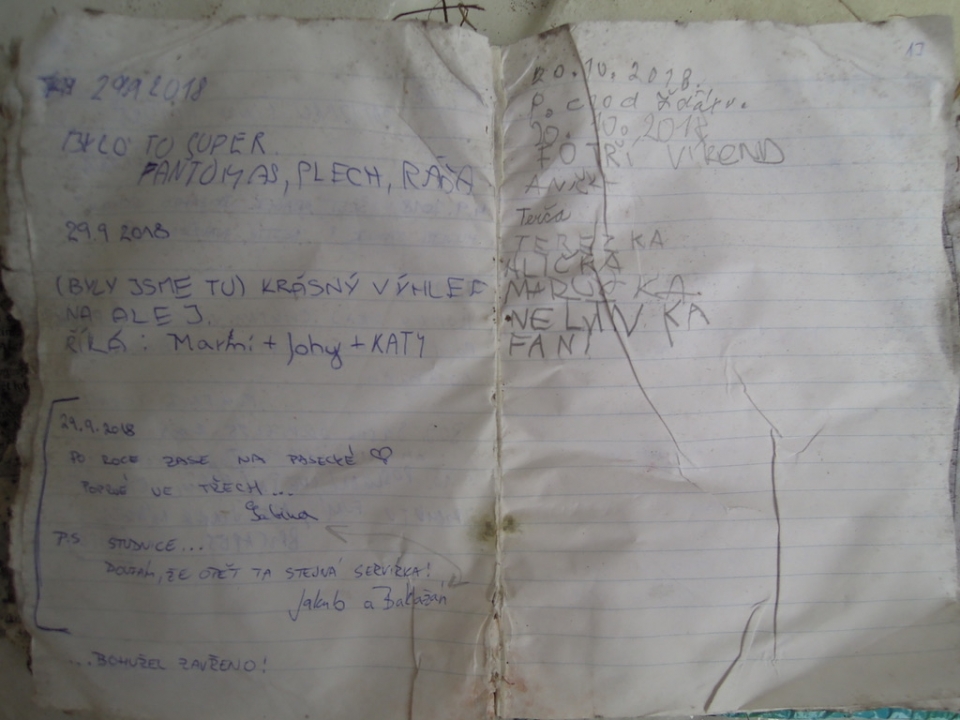 29.9.2018
BYLO TO SUPER
FANTOMAS, PLECH, RÁĎA
29.9 2018
(BYLY JSME TU) KRÁSNÝ VÝHLED
NA ALEJ.
ŘÍKÁ: Martini + Johy + KATY
29.9.2018
PO ROCE ZASE NA PASECKÉ ♡
POPRVÉ VE TŘECH...
Sabina
P.S. STUDNICE...
DOUFÁM, ŽE OPĚT TA STEJNÁ SERVÍRKA!
Jakub a Baklažán
...BOHUŽEL ZAVŘENO!
13
20.10.2018.
P. chod Žďáru.
20.10.2018
FOTŘÍ VÍKEND
Terča
TEREZKA
ALIČKA
NELINKA
FANI